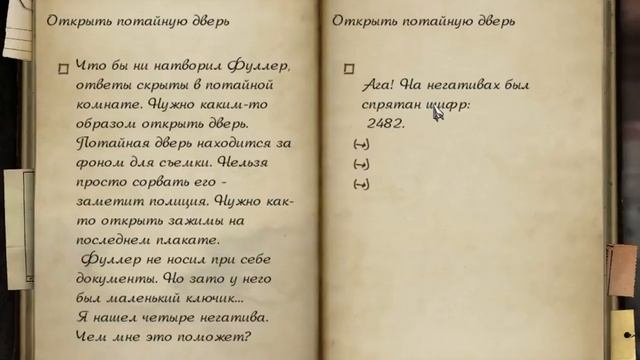 Открыть потайную дверь
Что бы ни натворил Фуллер,
ответы скрыты в потайной
комнате. Нужно каким-то
образом открыть дверь.
Потайная дверь находится за
фоном для съемки. Нельзя
просто сорвать его -
заметит полиция. Нужно как-
то открыть зажимы на
последнем плакате.
Фуллер не носил при себе
документы. Но зато у него
был маленький ключик...
Я нашел четыре негатива.
Чем мне это поможет?
Открыть потайную дверь
Ага! На негативах был
спрятан шифр:
2482.
(→)
(→)
(→)